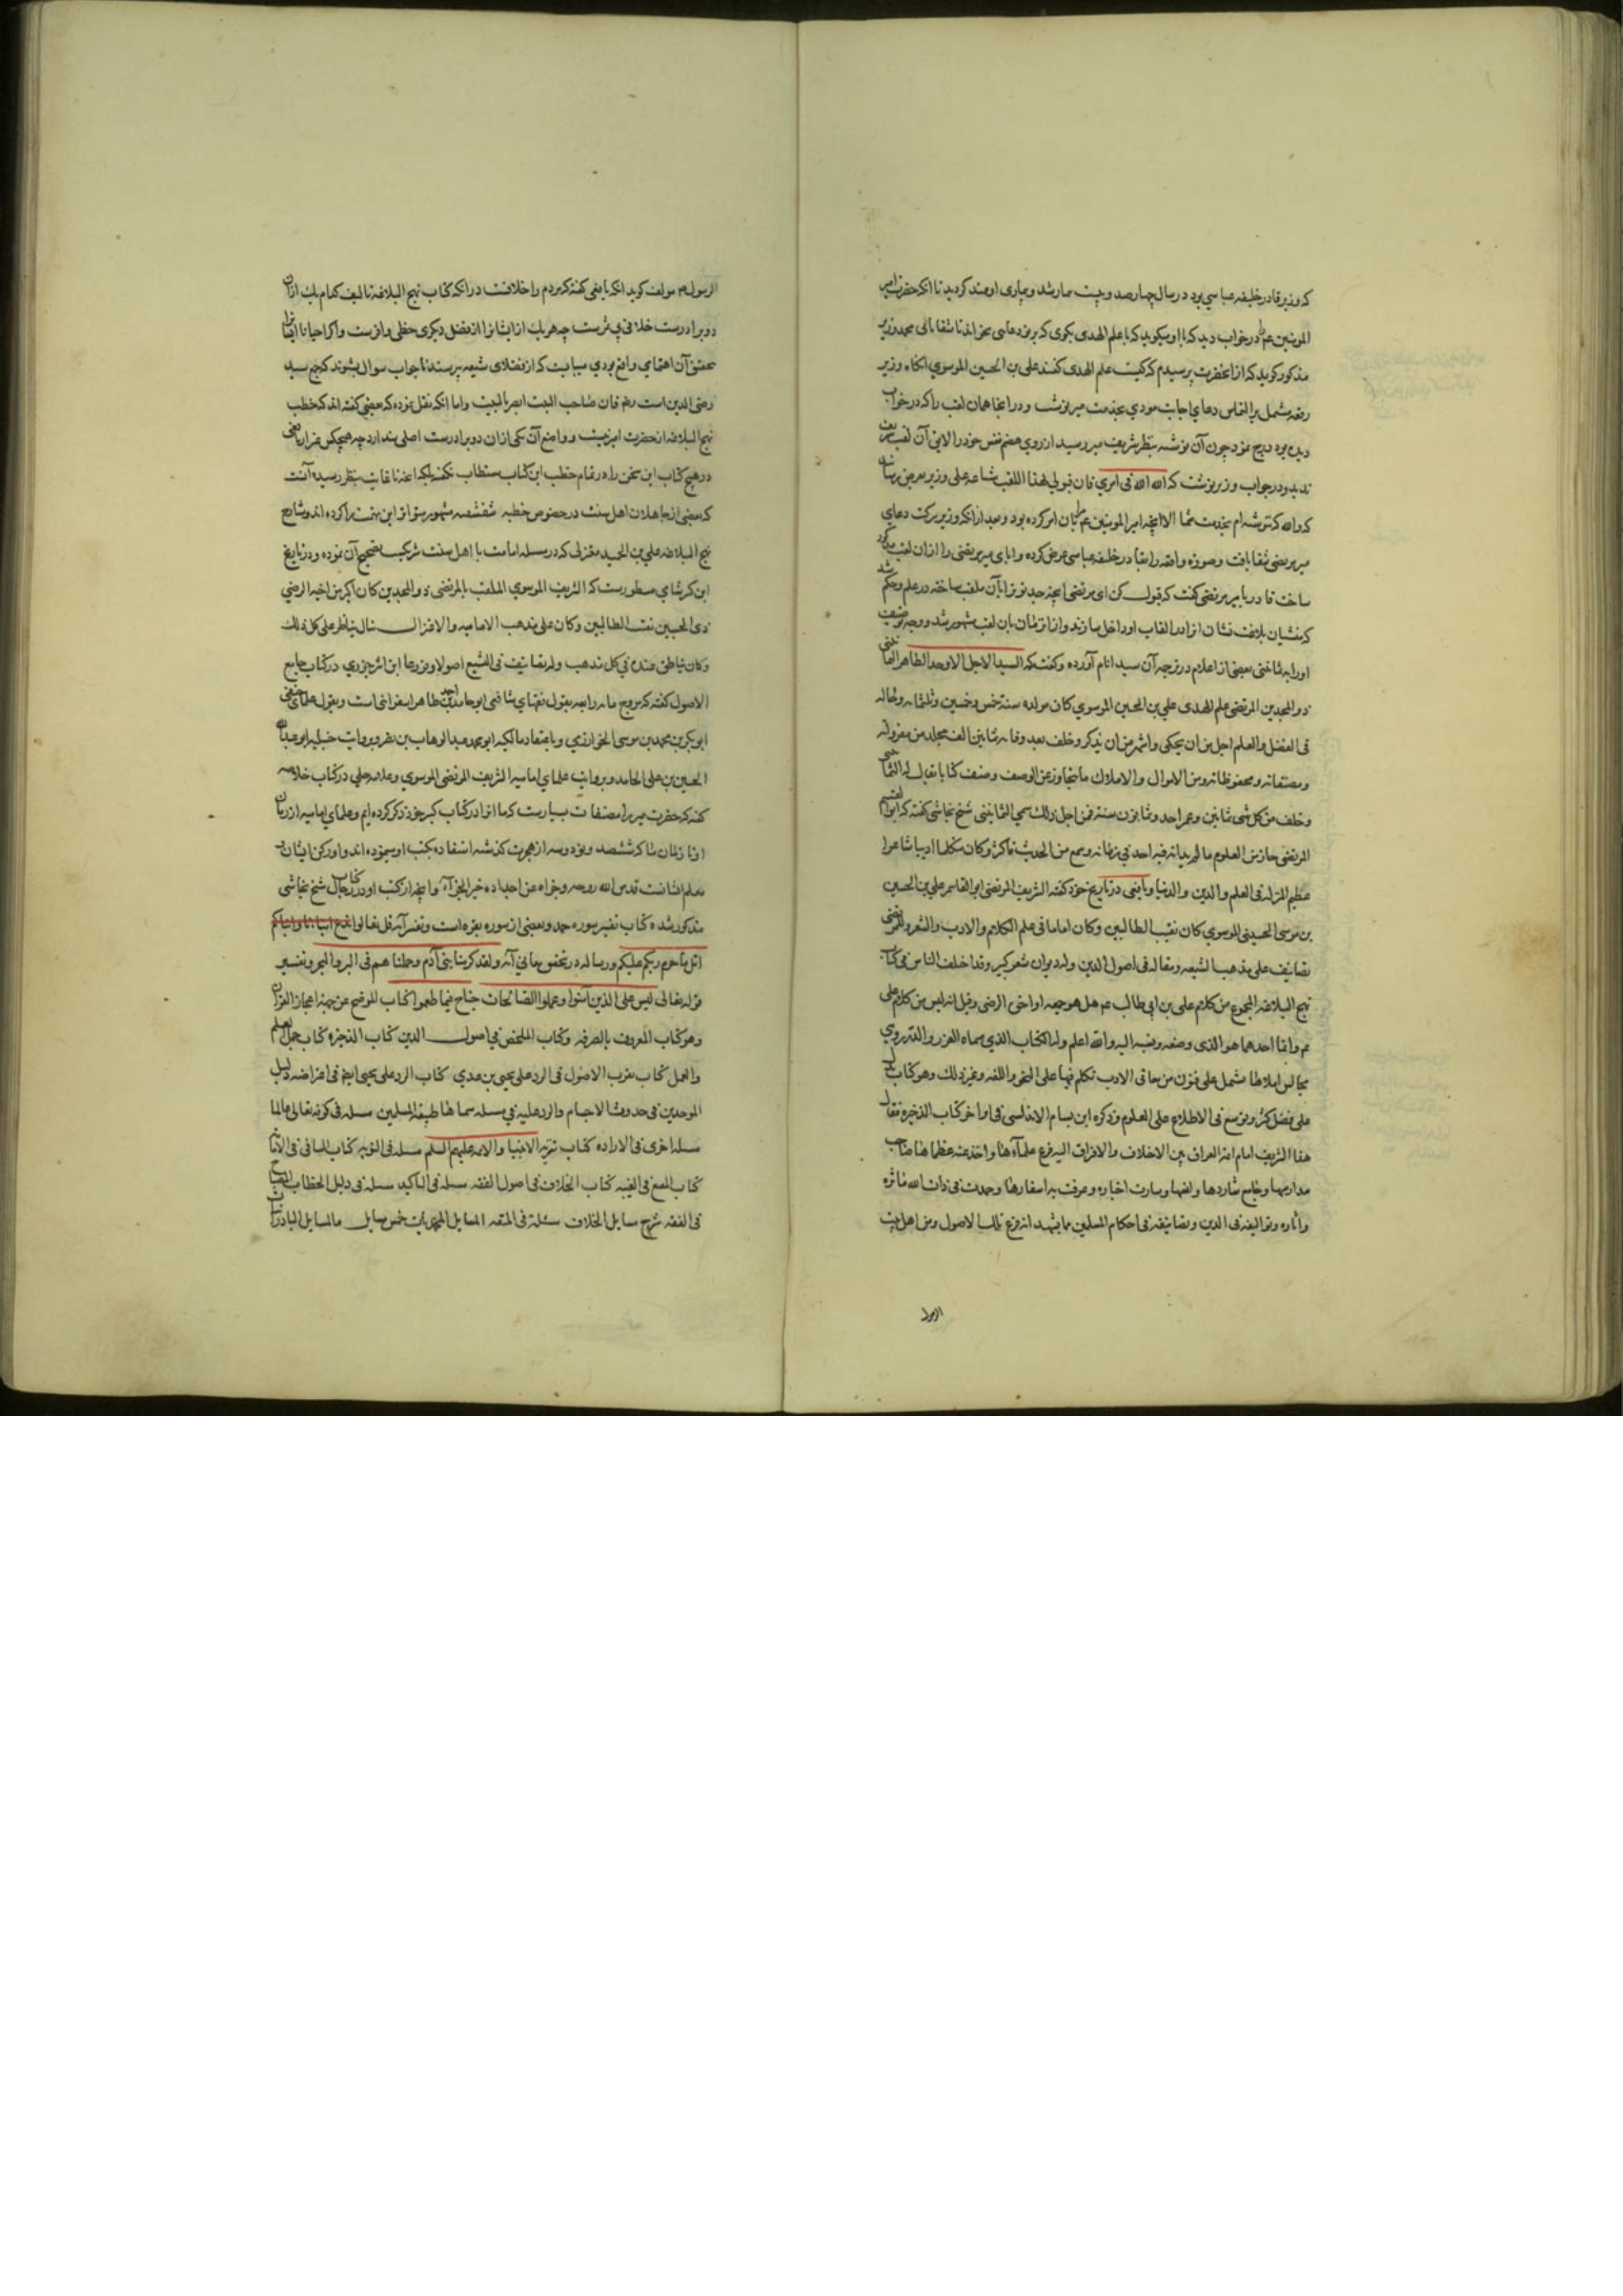 که وزیر قادر خلیفه عباسی بود در سال چهارصد و بیست بیمار شد و بیماری او ممتد کردید تا انکه حضرت امیر
المومنین عم در خواب دید که با او میکوید که با علم الهدی بکوی که بر تو دعایی بخواند تا شفا یابی محمد وزیر
مذکور کوید که از انحضرت پرسیدم که کیست علم الهدی کفتند علی بن الحسین الموسوی انکاه وزیر
رقعه مشتمل بر التماس دعای اجابت مودی بخدمت میر نوشت و در انجا همان لقب را که در خواب
دیده بود درج نمود چون آن نوشته بنظر شریف میر رسید از روی هضم نفس خود را لایق آن لقب شریف
ندید و در جواب وزیر نوشت که الله الله فی امری فان قبولی لهذا اللقب شناعه علی وزیر بعرض رسانید
که والله که ننوشته ام بخدمت شما الا انچه امیر المومنین عم مرا بان امر کرده بود و بعد از انکه وزیر ببرکت دعای
میر مرتضی شفا یافت و صورت واقعه را بقادر خلیفه عباسی عرض کرده و ابای میر مرتضی را از ان لقب مذکور
ساخت قادر با میر مرتضی کفت که قبول کن ای مرتضی انچه جد تو ترا بآن ملقب ساخته در علم و حکم شد
که منشیان بلاغت نشان انرا در القاب او داخل سازند و از ان زمان بان لقب مشهور شد و وجه توصیف
او را به ثمانینی بعضی از اعلام در ترجمه آن سید انام آورده و کفته که السید الاجل الاوحد الطاهر الثمانینی
ذو المجدین المرتضی علم الهدی علی بن الحسین الموسوی کان مولده سنة خمس و خمسین و ثلثمائه و حاله
فی الفضل و العلم اجل من ان یحکی و اشهر من ان یذکر و خلف بعد وفاته ثمانین الف مجلد من مقرواته
و مصنفاته و محفوظاته و من الاموال و الاملاک ما یتجاوز عن الوصف و صنف کتابا یقال له الثمانین
و خلف من کل شی ثمانین و عمر احد و ثمانین سنة فمن اجل ذلک سمی الثمانینی شیخ نجاشی کفته که ابو القسم
المرتضی حاز من العلوم ما لم یدانه فیه احد فی زمانه و سمع من الحدیث فاکثر و کان متکلما ادیبا شاعرا
عظیم المنزله فی العلم و الدین و الدنیا و یافعی در تاریخ خود کفته الشریف المرتضی ابو القاسم علی بن الحسین
بن موسی الحسینی الموسوی کان نقیب الطالبین و کان اماما فی علم الکلام و الادب و الشعر و للمرتضی
تصانیف علی مذهب الشیعه و مقاله فی اصول الدین و له دیوان شعر کبیر و قد اختلف الناس فی کتاب
نهج البلاغه المجموع من کلام علی بن ابی طالب عم هل هو جمعه او اخی الرضی و قیل انه لیس من کلام علی
عم و انما احدهما هو الذی وضعه و نسبه الیه و الله اعلم و له الکتاب الذی سماه الغرر و الدرر و هی
مجالس املاها تشتمل علی فنون من معانی الادب تکلم فیها علی النحو و اللغه و غیر ذلک و هو کتاب یدل
علی فضل کثیر و توسع فی الاطلاع علی العلوم و ذکره ابن بسام الاندلسی فی اواخر کتاب الذخیره فقال
هذا الشریف امام ائمة العراق بین الاختلاف و الافتراق الیه فزع علماءها و اخذ عنه عظماءها صاحب
مدارسها و جامع شاردها و انسها و سارت اخباره و عرفت به اسفارها و حمدت فی ذات الله ماثره
و اثاره و توالیفه فی الدین و تصانیفه فی احکام المسلمین مما یشهد انه فرع تلک الاصول و من اهل بیت
الرسول
الرسول مولف کوید انکه یافعی کفته که مردم را خلافست در انکه کتاب نهج البلاغه تالیف کدام یک از ان
دو برادرست خلافی بی ثمرست چه هر یک از ایشانرا از فضل دیکری حظی وافرست و اکر احیانا ایشانرا
بتحقیق آن اهتمامی واقع بودی میبایست که از فضلای شیعه پرسند تا جواب سوال بشنوند که جمع سید
رضی الدین است رضه فان صاحب البیت ابصر بالبیت و اما انکه نقل نموده که بعضی کفته اند که خطب
نهج البلاغه از حضرت امیر نیست و واضع آن یکی از ان دو برادرست اصلی ندارد چه هیچکس غیر از یافعی
در هیچ کتاب این سخن را در تمام خطب این کتاب مستطاب نکفته بلکه انچه تا غایت بنظر رسیده آنست
که بعضی از جاهلان اهل سنت در خصوص خطبه شقشقیه مشهور متواتر این تهمت را کرده اند و شارح
نهج البلاغه علی بن الحمید معتزلی که در مسله امامت با اهل سنت شریکست تصحیح آن نموده و در تاریخ
ابن کثیر شامی مسطورست که الشریف الموسوی الملقب بالمرتضی ذو المجدین کان اکبر من اخیه الرضی
ذی الحسبین نقیب الطالبین و کان علی مذهب الامامیه و الاعتزال یناظر علی کل ذلک
و کان یناظر عنده فی کل مذهب و له تصانیف فی التشیع اصولا و فروعا ابن اثیر جزری در کتاب جامع
الاصول کفته که مروج مائه رابعه بقول فقهای شافعی ابو حامد احمد بن طاهر اسفراینی است و بقول علمای حنفی
ابوبکر بن محمد بن موسی الخوارزمی و باعتقاد مالکیه ابو محمد عبد الوهاب بن نصر و بروایت حنبلیه ابو عبد الله
الحسین بن علی الحامد و بروایت علمای امامیه الشریف المرتضی الموسوی و علامه حلی در کتاب خلاصه
کفته که حضرت میر را مصنفات بسیارست که ما انرا در کتاب کبیر خود ذکر کرده ایم و علمای امامیه از زمان
او تا زمان ما که ششصد و نود و سه از هجرت کذشته استفاده بکتب او مینموده اند و او رکن ایشان و
معلم ایشانست قدس الله روحه و جزاه عن اجداده خیر الجزاء و انچه از کتب او در کتاب رجال شیخ نجاشی
مذکور شده کتاب تفسیر سوره حمد و بعضی از سوره بقره است و تفسیر آیه قل تعالوا
اتل ما حرم ربکم علیکم و رساله در تحقیق معانی آیه و لقد کرمنا بنی آدم و حملناهم فی البر و البحر و تفسیر
قوله تعالی لیس علی الذین آمنوا و عملوا الصالحات جناح فیما طعموا کتاب الموضح عن جهة اعجاز القران
و هو کتاب المعروف بالصرفه و کتاب الملخص فی اصول الدین کتاب الذخیره کتاب جمل العلم
و العمل کتاب تقریب الاصول فی الرد علی یحیی بن عدی کتاب الرد علی یحیی ایضا فی اعتراضه دلیل
الموحدین فی حدوث الاجسام و الرد علیه فی مسله سماها طبیعة المسلمین مسله فی کونه تعالی عالما
مسله اخری فی الاراده کتاب تنزیه الانبیا و الائمه علیهم السلم مسله فی التوبه کتاب الشافی فی الامامة
کتاب المقنع فی الغیبه کتاب الخلاف فی اصول الفقه مسله فی التاکید مسله فی دلیل الخطاب المصباح
فی الفقه شرح مسایل الخلاف مسئلة فی المتعه المسایل خمس مسایل